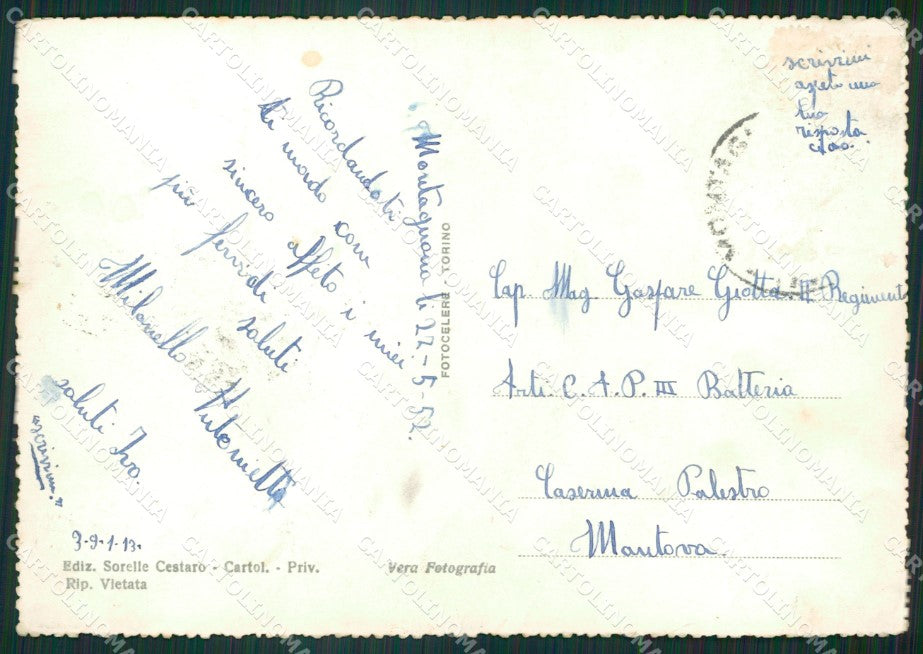 Montagnana li 22-5-52.
Ricordandoti
ti mando con
sincero affeto i miei
più fervidi saluti
Milanello Antonietta
saluti Ivo.
"scrivimi."
3-9-1-13.
Ediz. Sorelle Cestaro - Cartol. - Priv.
Rip. Vietata
Vera Fotografia
FOTOCELERE - TORINO
scrivimi
aspeto una
tua
risposta
ciao.
MONTAG
Cap Mag Gaspare Giotta II Regiment
Arti. C. A. P. III Batteria
Caserma Palestro
Mantova
CARTOLINOMANIA